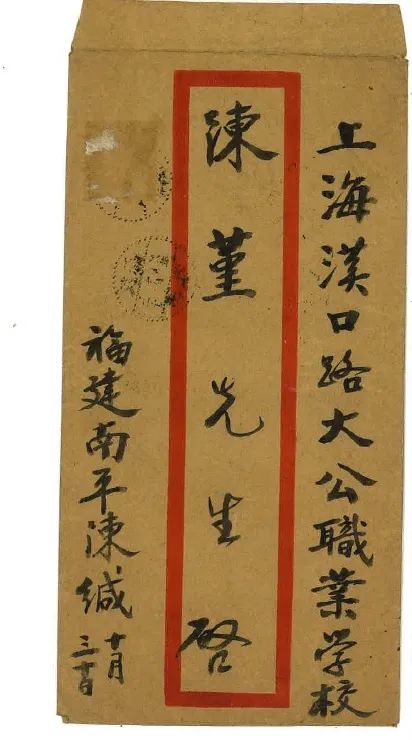 上海漢口路大公職業学校
陳堇先生啓
福建南平陳緘
十月
三十日